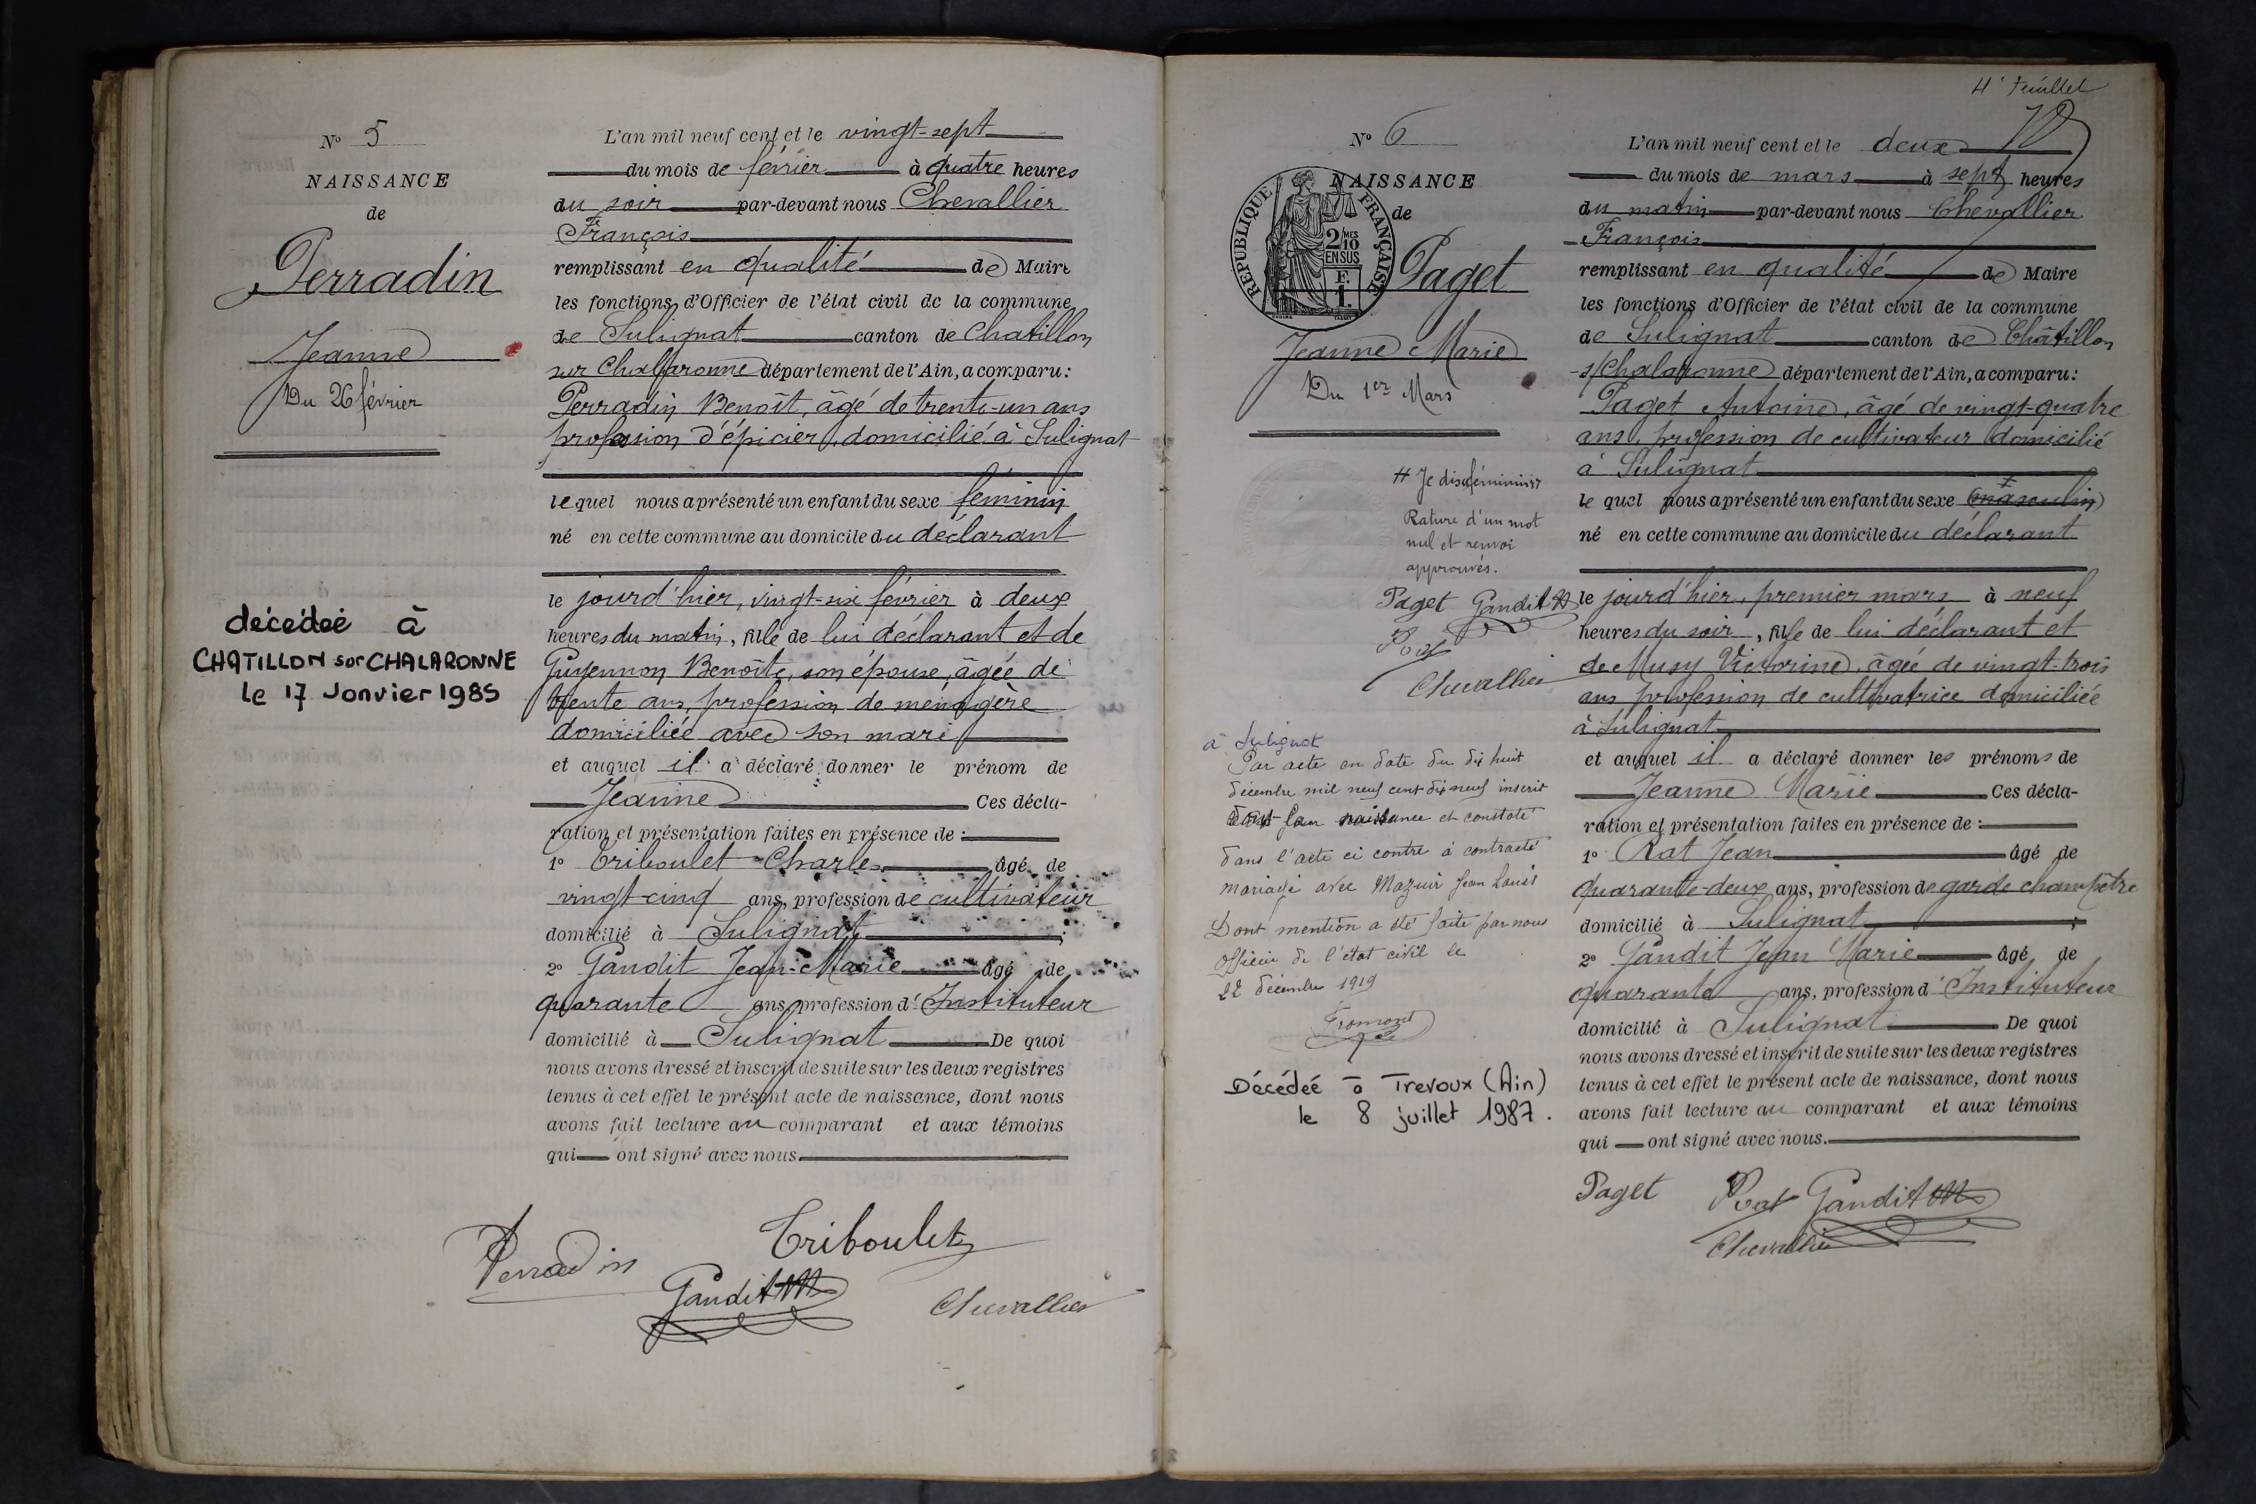 N° 5
NAISSANCE
de
Perradin
Jeanne
Du 26 février
décédée à
CHATILLON sur CHALARONNE
le 17 Janvier 1985
L'an mil neuf cent et le vingt-sept
du mois de février à quatre heures
du soir par-devant nous Chevallier
François
remplissant en qualité de Maire
les fonctions d'Officier de l'état civil de la commune
de Sulignat canton de Chatillon
sur Chalaronne département de l'Ain, a comparu :
Perradin Benoît, âgé de trente-un ans
profession d'épicier, domicilié à Sulignat
lequel nous a présenté un enfant du sexe féminin
né en cette commune au domicile du déclarant
le jourd'hier, vingt-six février à deux
heures du matin, fille de lui déclarant et de
Guyennon Benoîte, son épouse, âgée de
trente ans, profession de ménagère
domiciliée avec son mari
et auquel il a déclaré donner le prénom de
Jeanne Ces décla-
ration et présentation faites en présence de :
1° Triboulet Charles âgé de
vingt-cinq ans, profession de cultivateur
domicilié à Sulignat ;
2° Gandit Jean-Marie âgé de
quarante ans, profession d'Instituteur
domicilié à Sulignat De quoi
nous avons dressé et inscrit de suite sur les deux registres
tenus à cet effet le présent acte de naissance, dont nous
avons fait lecture au comparant et aux témoins
qui ont signé avec nous
Perradin Triboulet
Gandit Chevallier
4e feuillet
N° 6
NAISSANCE
de
REPUBLIQUE FRANÇAISE
2/10 MES
EN SUS
F.
1.
Paget
Jeanne Marie
Du 1er Mars
# Je dis "féminin"
Rature d'un mot
nul et renvoi
approuvés.
Paget Gandit
Rat
Chevallier
à Sulignat
Par acte en date du dix huit
décembre mil neuf cent dix neuf inscrit
la naissance est constatée
dans l'acte ci contre a contracté
mariage avec Mazuir Jean Louis
Dont mention a été faite par nous
Officier de l'état civil le
22 décembre 1919
Fromont
Décédée à Trevoux (Ain)
le 8 juillet 1987.
L'an mil neuf cent et le deux
du mois de mars à sept heures
du matin par-devant nous Chevallier
François
remplissant en qualité de Maire
les fonctions d'Officier de l'état civil de la commune
de Sulignat canton de Châtillon
s/Chalaronne département de l'Ain, a comparu :
Paget Antoine, âgé de vingt-quatre
ans, profession de cultivateur domicilié
à Sulignat
lequel nous a présenté un enfant du sexe masculin
né en cette commune au domicile du déclarant
le jourd'hier, premier mars à neuf
heures du soir, fille de lui déclarant et
de Musy Victorine, âgée de vingt-trois
ans profession de cultivatrice domiciliée
à Sulignat
et auquel il a déclaré donner les prénoms de
Jeanne Marie Ces décla-
ration et présentation faites en présence de :
1° Rat Jean âgé de
quarante-deux ans, profession de garde champêtre
domicilié à Sulignat ;
2° Gandit Jean Marie âgé de
quarante ans, profession d'Instituteur
domicilié à Sulignat De quoi
nous avons dressé et inscrit de suite sur les deux registres
tenus à cet effet le présent acte de naissance, dont nous
avons fait lecture au comparant et aux témoins
qui ont signé avec nous.
Paget Rat Gandit
Chevallier